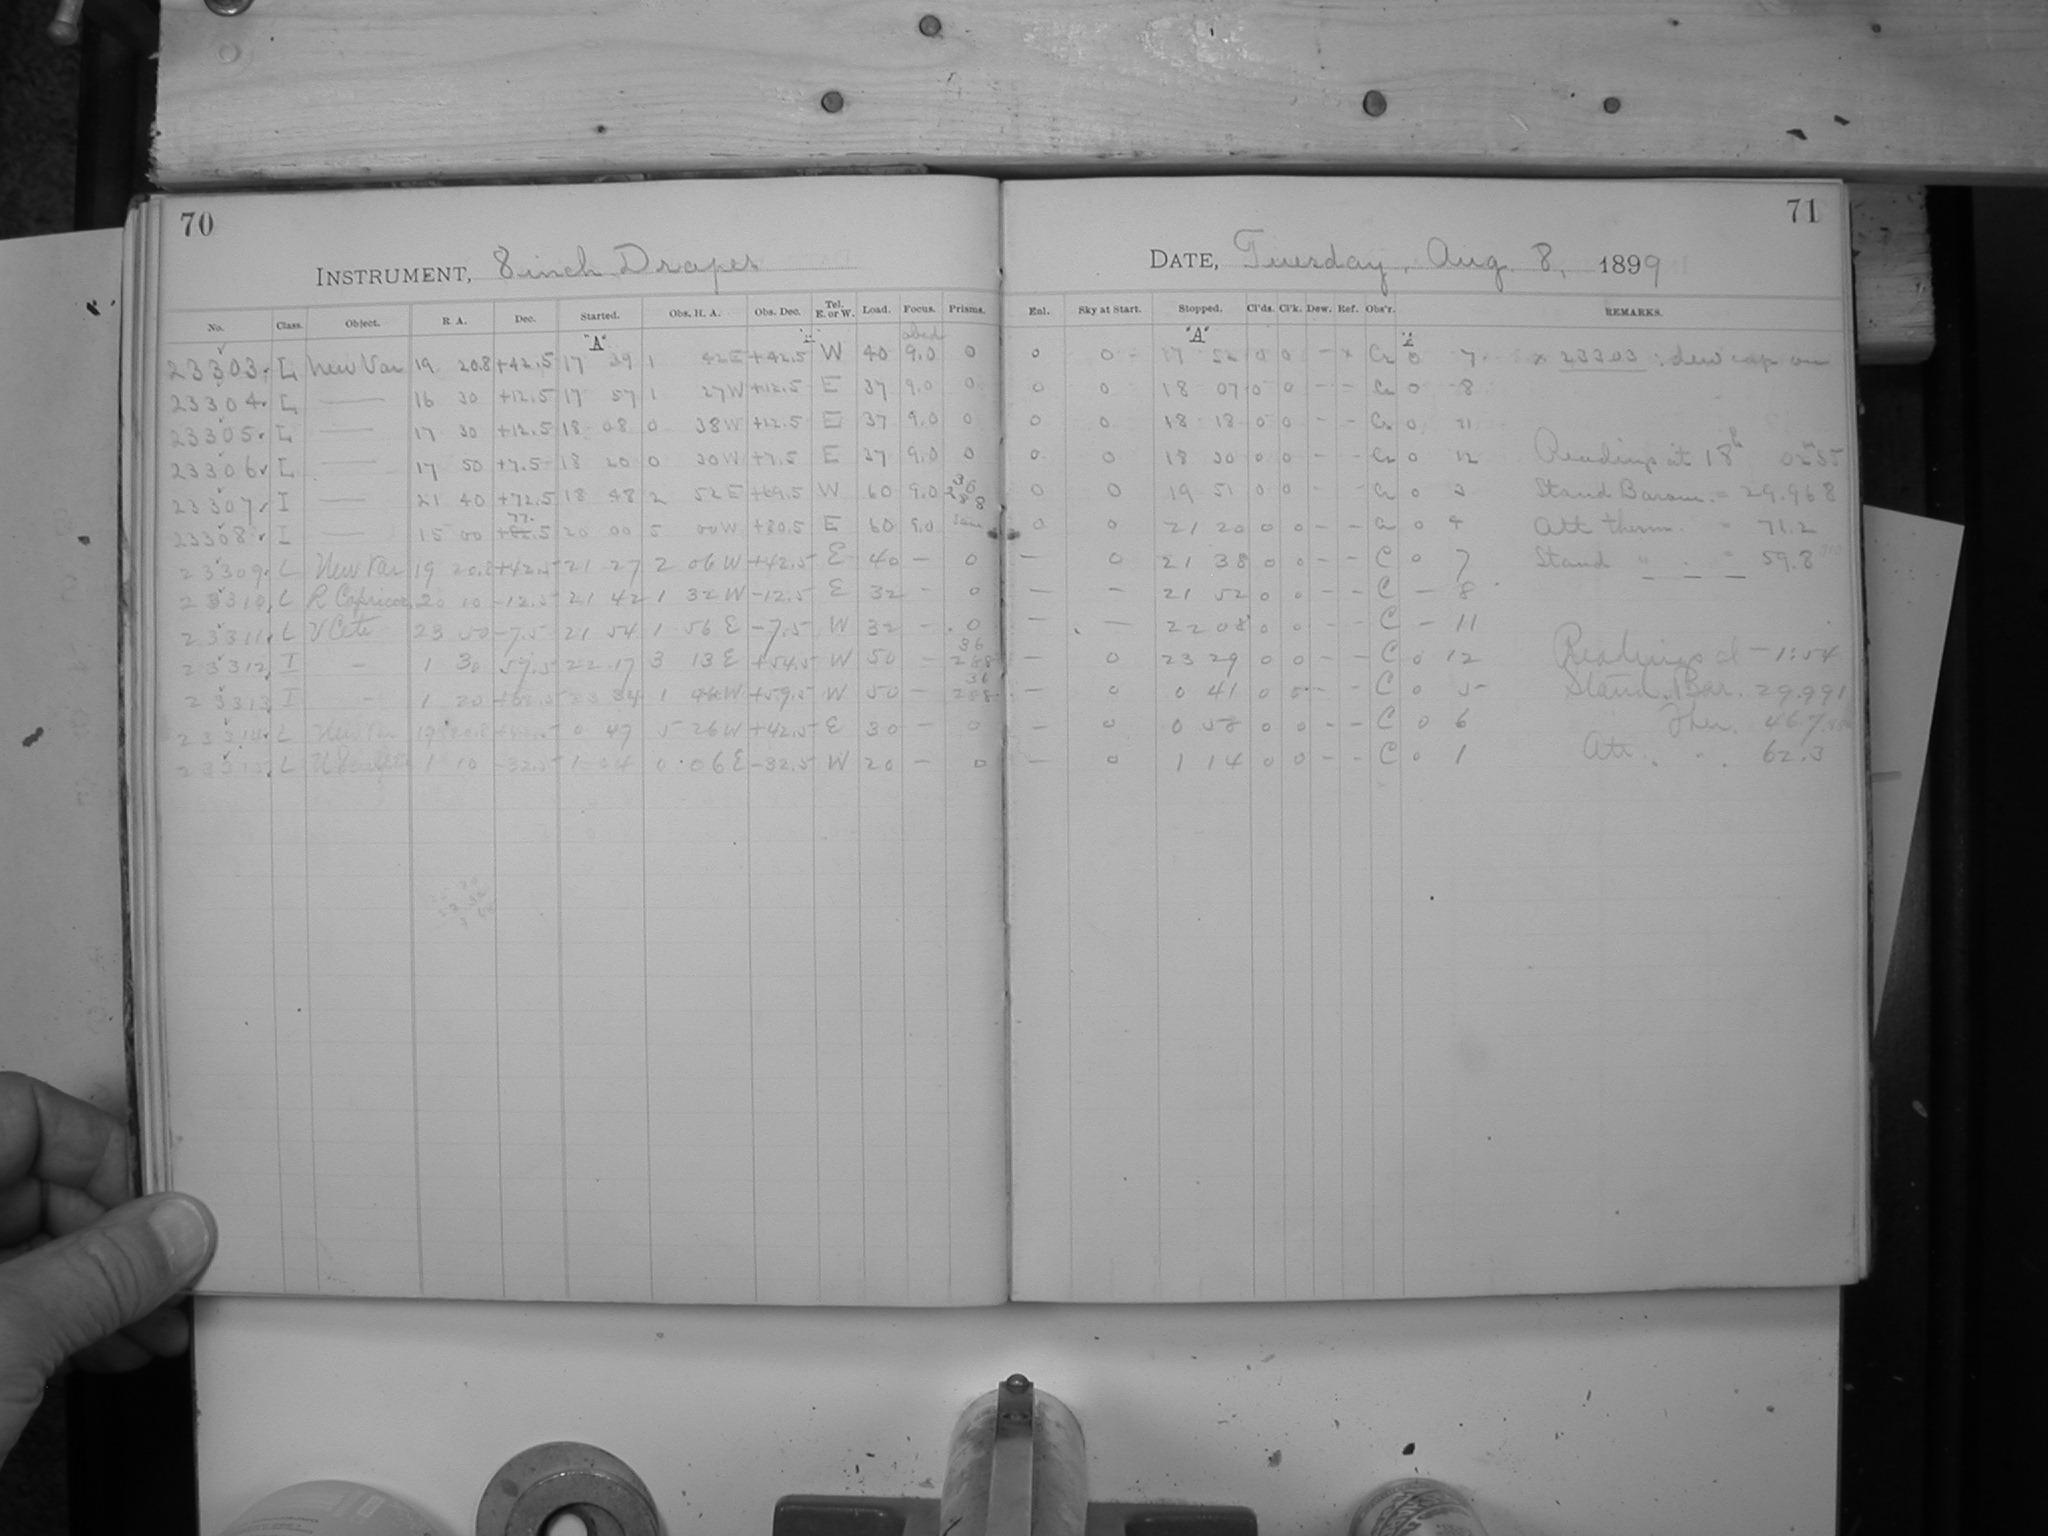 70
INSTRUMENT, 8 inch Draper
No. Class. Object. R. A. Dec. Started. Obs. H. A. Obs. Dec. Tel. E. or W. Load. Focus. Prisms.
"A" abcd
23303 L New Var 19 20.8 +42.5 17 39 1 42 E +42.5 W 40 9.0 0
23304 L — 16 30 +12.5 17 57 1 27 W +12.5 E 37 9.0 0
23305 L — 17 30 +12.5 18 08 0 38 W +12.5 E 37 9.0 0
23306 L — 17 50 +7.5 18 20 0 30 W +7.5 E 37 9.0 0
23307 I — 21 40 +72.5 18 48 2 52 E +69.5 W 60 9.0 36 288
23308 I — 15 00 77.5 20 00 5 00 W +80.5 E 60 9.0 Same
23309 L New Var 19 20.8 +42.5 21 27 2 06 W +42.5 E 40 — 0
23310 L R Capricor. 20 10 -12.5 21 42 1 32 W -12.5 E 32 — 0
23311 L V Ceti 23 50 -7.5 21 54 1 56 E -7.5 W 32 — 0
23312 I — 1 30 57.5 22 17 3 13 E +54.5 W 50 — 36 288
23313 I — 1 20 23 34 1 W +59.5 W 50 — 36 288
23314 L New Var 19 20.8 +42.5 0 49 5 26 W +42.5 E 30 — 0
23315 L 1 10 -32.5 1 04 0 06 E -32.5 W 20 — 0
71
DATE, Tuesday, Aug. 8, 1899
Enl. Sky at Start. Stopped. Cl'ds. Cl'k. Dew. Ref. Obs'r. REMARKS.
"A"
0 0 17 52 0 0 – x Cr 0 7 x 23303: dew cap on
0 0 18 07 0 0 – – Cr 0 8
0 0 18 18 0 0 – – Cr 0 11
0 0 18 30 0 0 – – Cr 0 12 Readings at 18h
0 0 19 51 0 0 – – Cr 0 3 Stand Barom. = 29.968
0 0 21 20 0 0 – – Cr 0 4 Att therm. " 71.2
— 0 21 38 0 0 – – C 0 7 Stand " " 59.8
— — 21 52 0 0 – – C – 8
— — 22 08 0 0 – – C – 11
— 0 23 29 0 0 – – C 0 12 Readings at – 1:54
— 0 0 41 0 0 – – C 0 5 Stand. Bar. 29.991
— 0 0 58 0 0 – – C 0 6 Ther. 46.7
— 0 1 14 0 0 – – C 0 1 Att. " 62.3